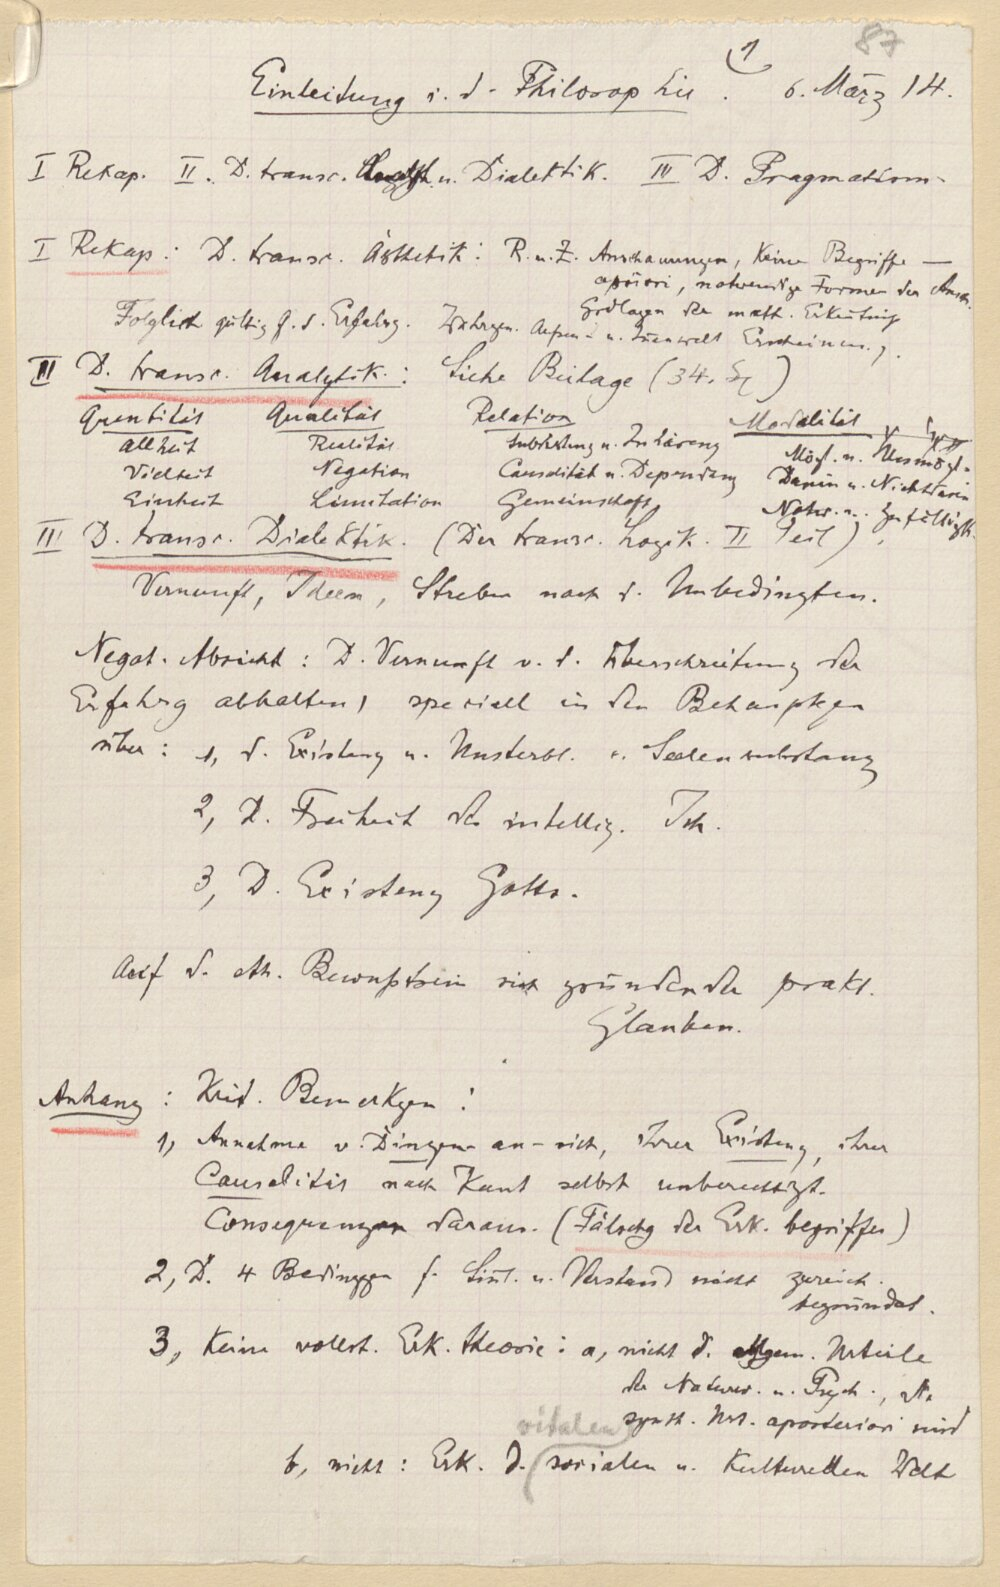 1
87
Einleitung i. d. Philosophie. 6. März 14.
I Rekap. II. D. transc. u. Dialektik. III D. Pragmatism.
I Rekap: D. transc. Ästhetik: R. u. Z. Anschauungen, keine Begriffe —
apriori, notwendige Formen der Ansch.
Grdlagen der math. Erkentnis
Folglich gültig f. d. Erfahrg. Aussen- u. Innenwelt Erscheinung.
II D. transc. Analytik: Siehe Beilage (34. )
Quantität Qualität Relation Modalität
Allheit Realität Subsistenz u. Inhärenz Mögl. u. Unmögl.
Vielheit Negation Causalität u. Dependenz Dasein u. Nichtsein
Einheit Limitation Gemeinschaft Notw. u. Zufälligk.
III D. transc. Dialektik. (Der transc. Logik. II Teil).
Vernunft, Ideen, Streben nach d. Unbedingten.
Negat. Absicht: D. Vernunft v. d. Überschreitung der
Erfahrg abhalten, speciell in den Behauptgen
über: 1, d. Existenz u. Unsterbl. e. Seelensubstanz
2, D. Freiheit des intellig. Ich.
3, D. Existenz Gottes.
Auf d. eth. Bewusstsein sich gründender prakt.
Glauben.
Anhang: Krit. Bemerkgen:
1, Annahme v. Dingen-an-sich, ihrer Existenz, ihrer
Causalität nach Kant selbst unberechtigt.
Consequenzen daraus. (Fälschg der Erk. begriffes)
2, D. 4 Bedinggen f. Sinl. u. Verstand nicht zureich.
begründet.
3, Keine vollst. Erk. theorie: a, nicht d. allgem. Urteile
der Naturw. u. Psych.,
synth. Urt. aposteriori sind
vitalen
b, nicht: Erk. d. socialen u. Kulturellen Welt